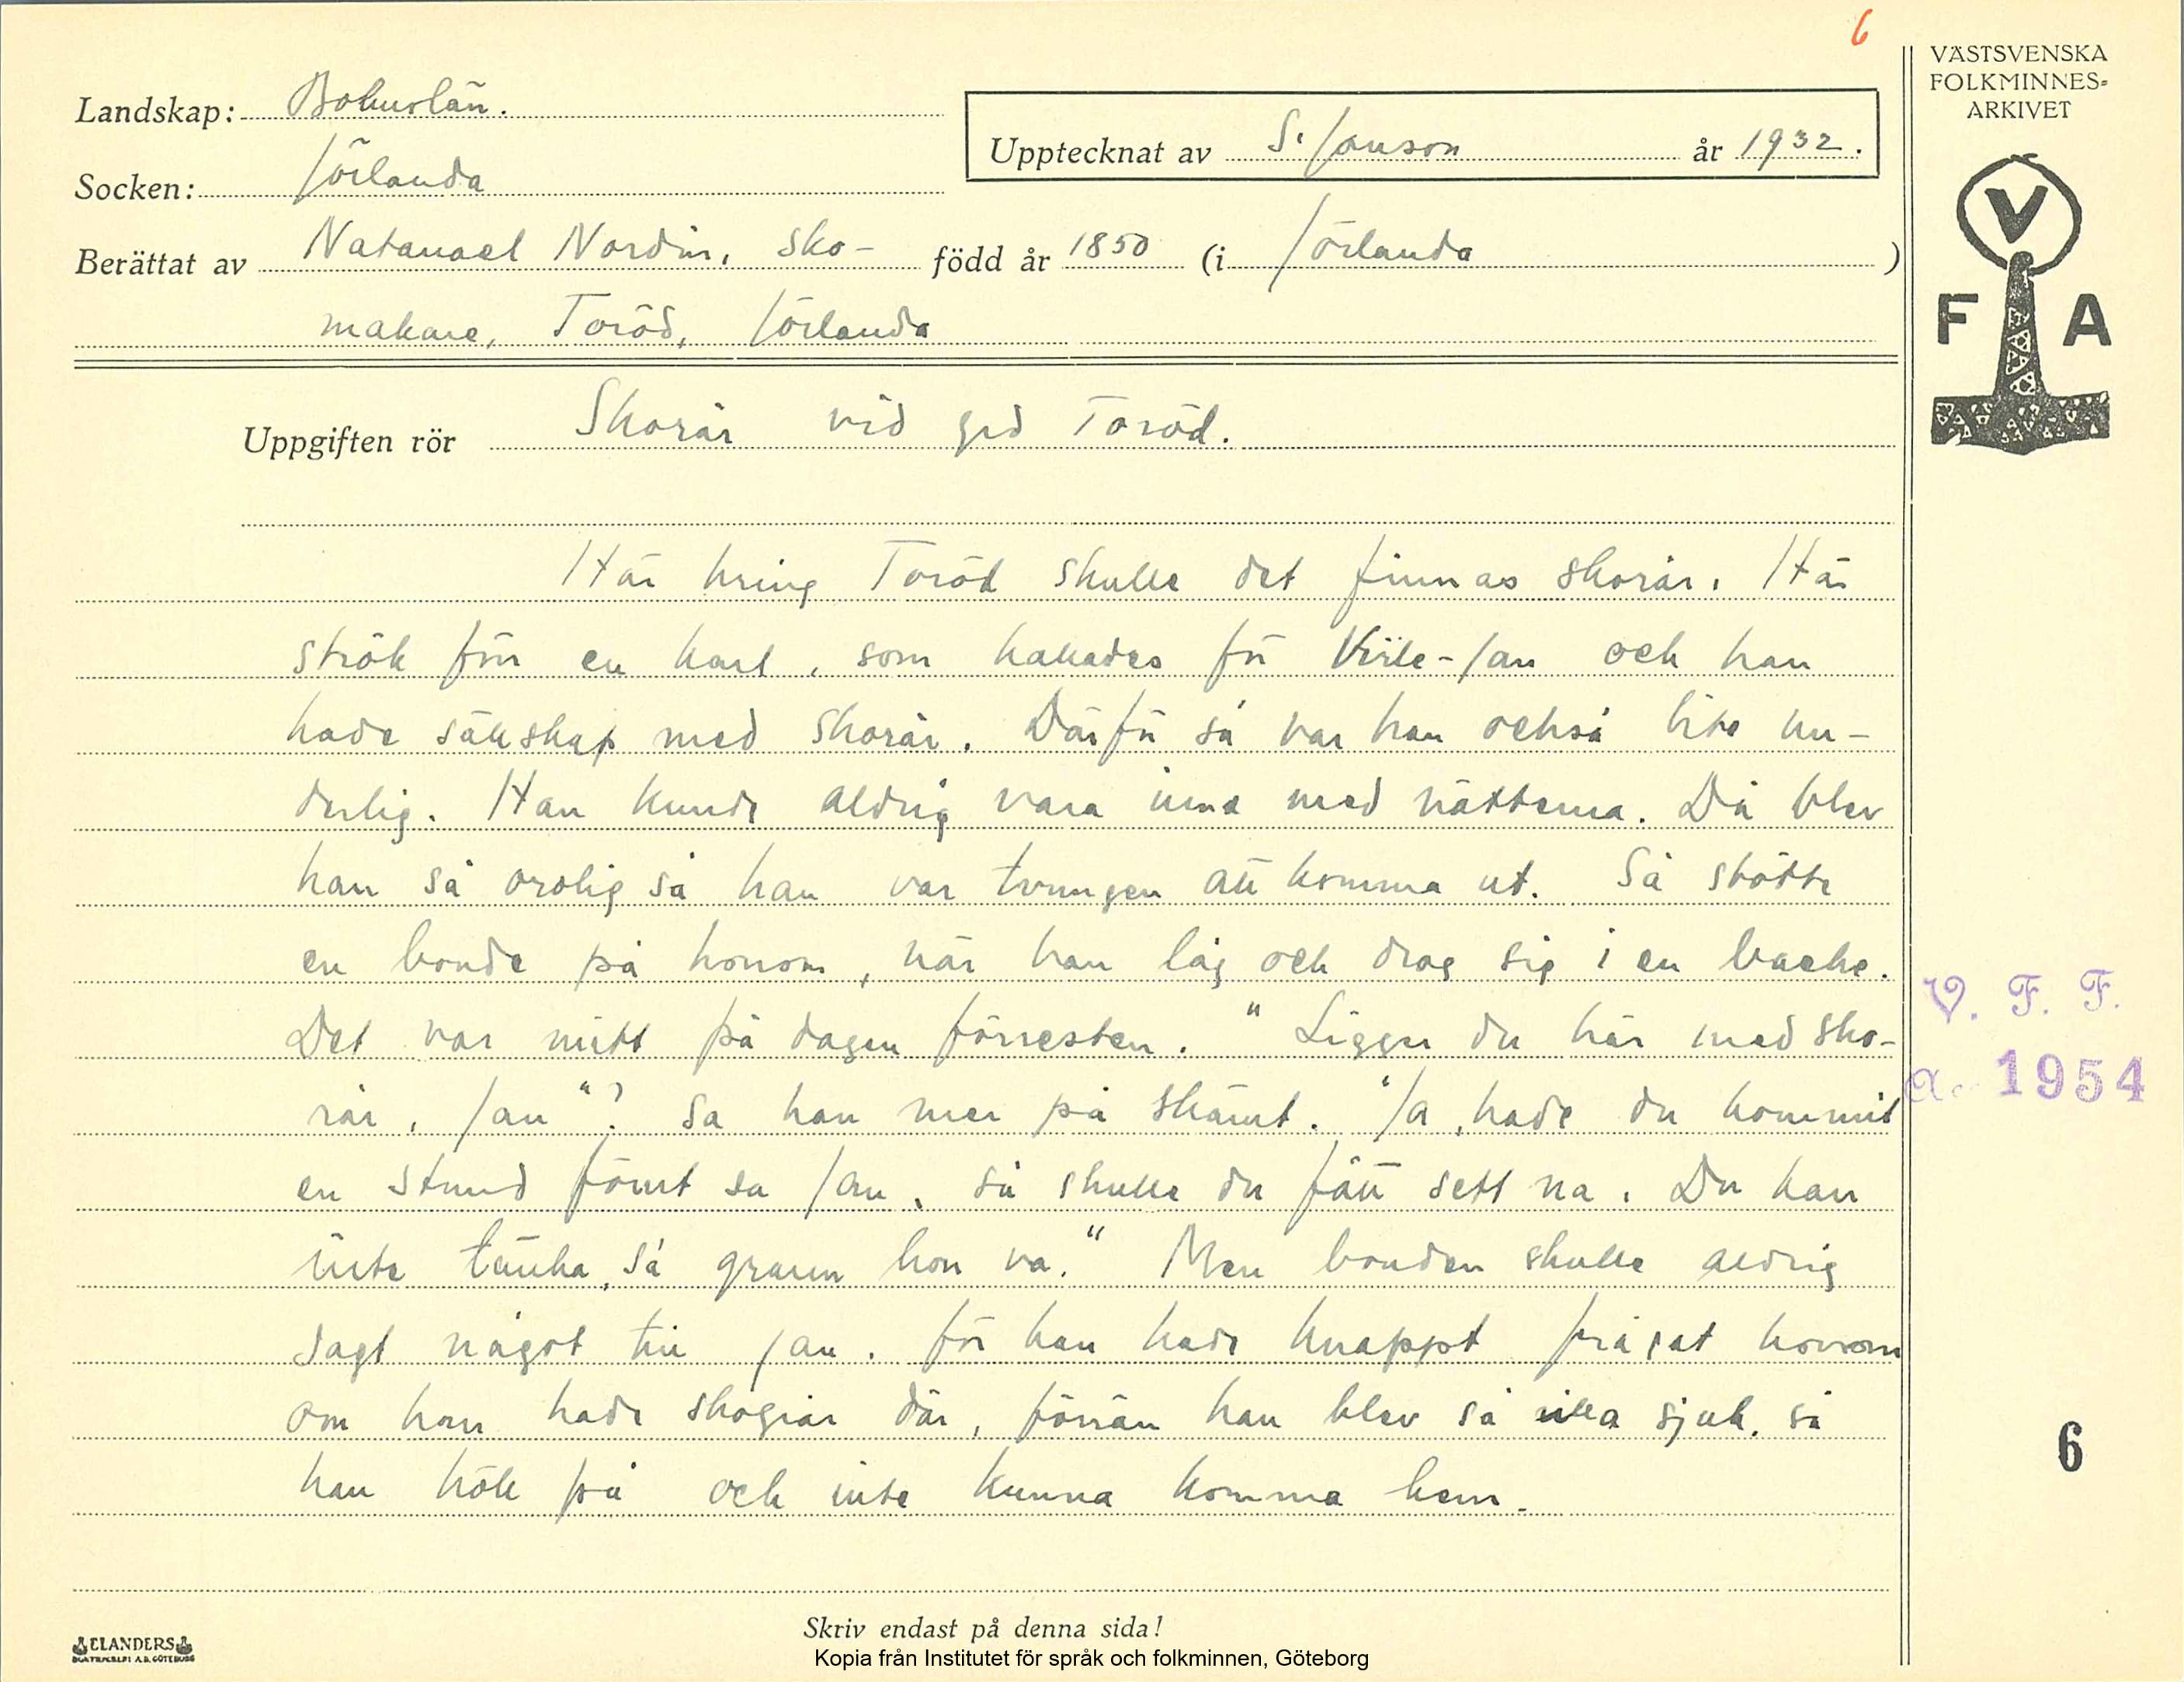 6
VÄSTSVENSKA
FOLKMINNES=
ARKIVET
Landskap: Bohuslän.
Upptecknat av S. Janson år 1932.
Socken: Jörlanda
Berättat av Natanael Nordin, sko- född år 1850 (i Jörlanda)
makare, Toröd, Jörlanda
V
F A
Uppgiften rör Skorår vid grd Toröd.
Här kring Toröd skulle det finnas skorår. Här
strök förr en karl, som kallades för Virle-Jan och han
hade sällskap med skorår. Därför så var han också lite un-
derlig. Han kunde aldrig vara inne med nätterna. Då blev
han så orolig så han var tvungen att komma ut. Så stötte
en bonde på honom, när han låg och drog sig i en backe.
Det var mitt på dagen förresten. "Ligger du här med sko-
rår, Jan"? sa han mer på skämt. "Ja, hade du kommit
en stund förut sa Jan, så skulle du fått sett na. Du kan
inte tänka, så grann hon va." Men bonden skulle aldrig
sagt något till Jan. för han hade knappt frågat honom
om han hade skogrår där, förrän han blev så illa sjuk, så
han höll på och inte kunna komma hem.
V. F. F.
a. 1954
6
ELANDERS
BOKTRYCKERI A.B. GÖTEBORG
Skriv endast på denna sida!
Kopia från Institutet för språk och folkminnen, Göteborg